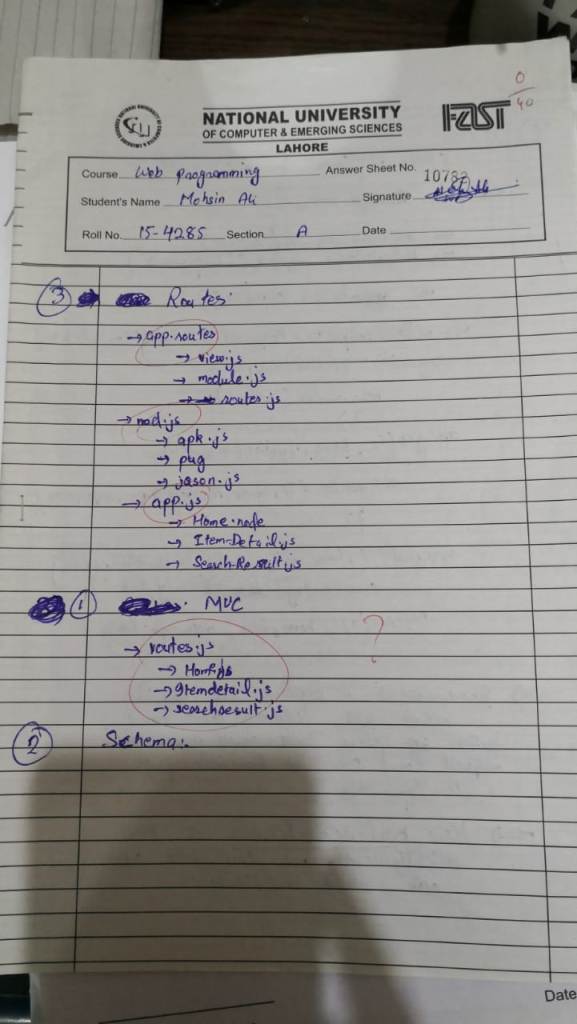 0
40
NATIONAL UNIVERSITY
OF COMPUTER & EMERGING SCIENCES
LAHORE
FAST
Course Web Programming Answer Sheet No. 10782
Student's Name Mohsin Ali Signature
Roll No. 15-4285 Section A Date
3 Routes
→ app.routes
→ view.js
→ module.js
→ routes.js
→ nod.js
→ apk.js
→ pug
→ jason.js
→ app.js
→ Home.node
→ Item-Detail.js
→ Search-Result.js
1 MVC
→ routes.js
?
→ Itemdetail.js
→ searchresult.js
2 Schema:
Date